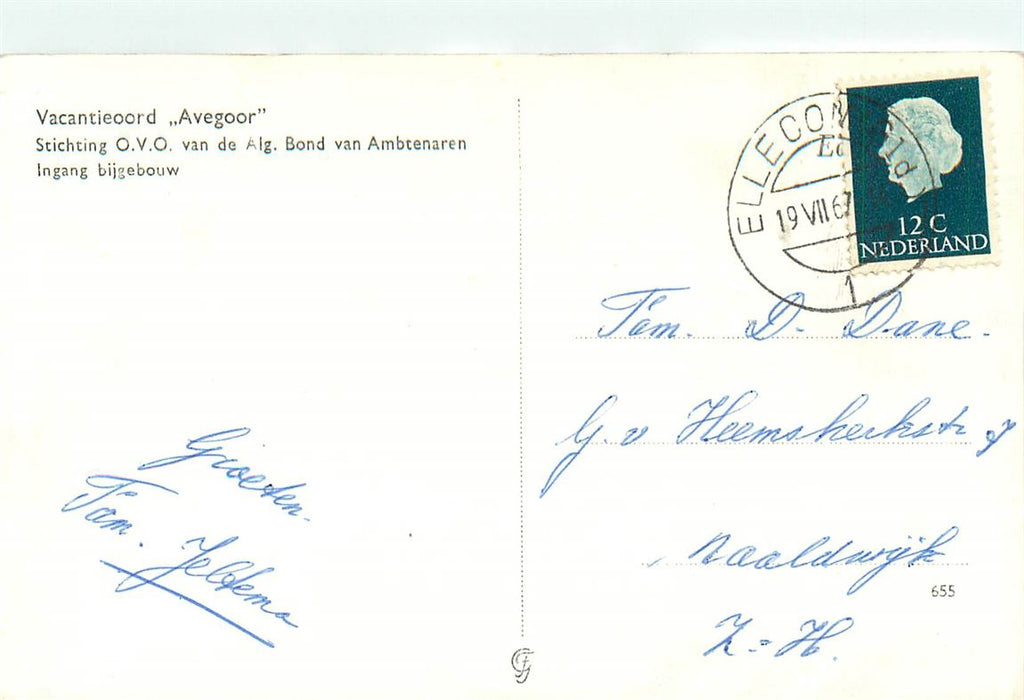 Vacantieoord „Avegoor”
Stichting O.V.O. van de Alg. Bond van Ambtenaren
Ingang bijgebouw
ELLECOM
19 VII 67
1
12 C
NEDERLAND
Fam. D. Dane.
G. v Heemskerkstr
Naaldwijk
Z=H.
655
Groeten.
Fam. Jeltema